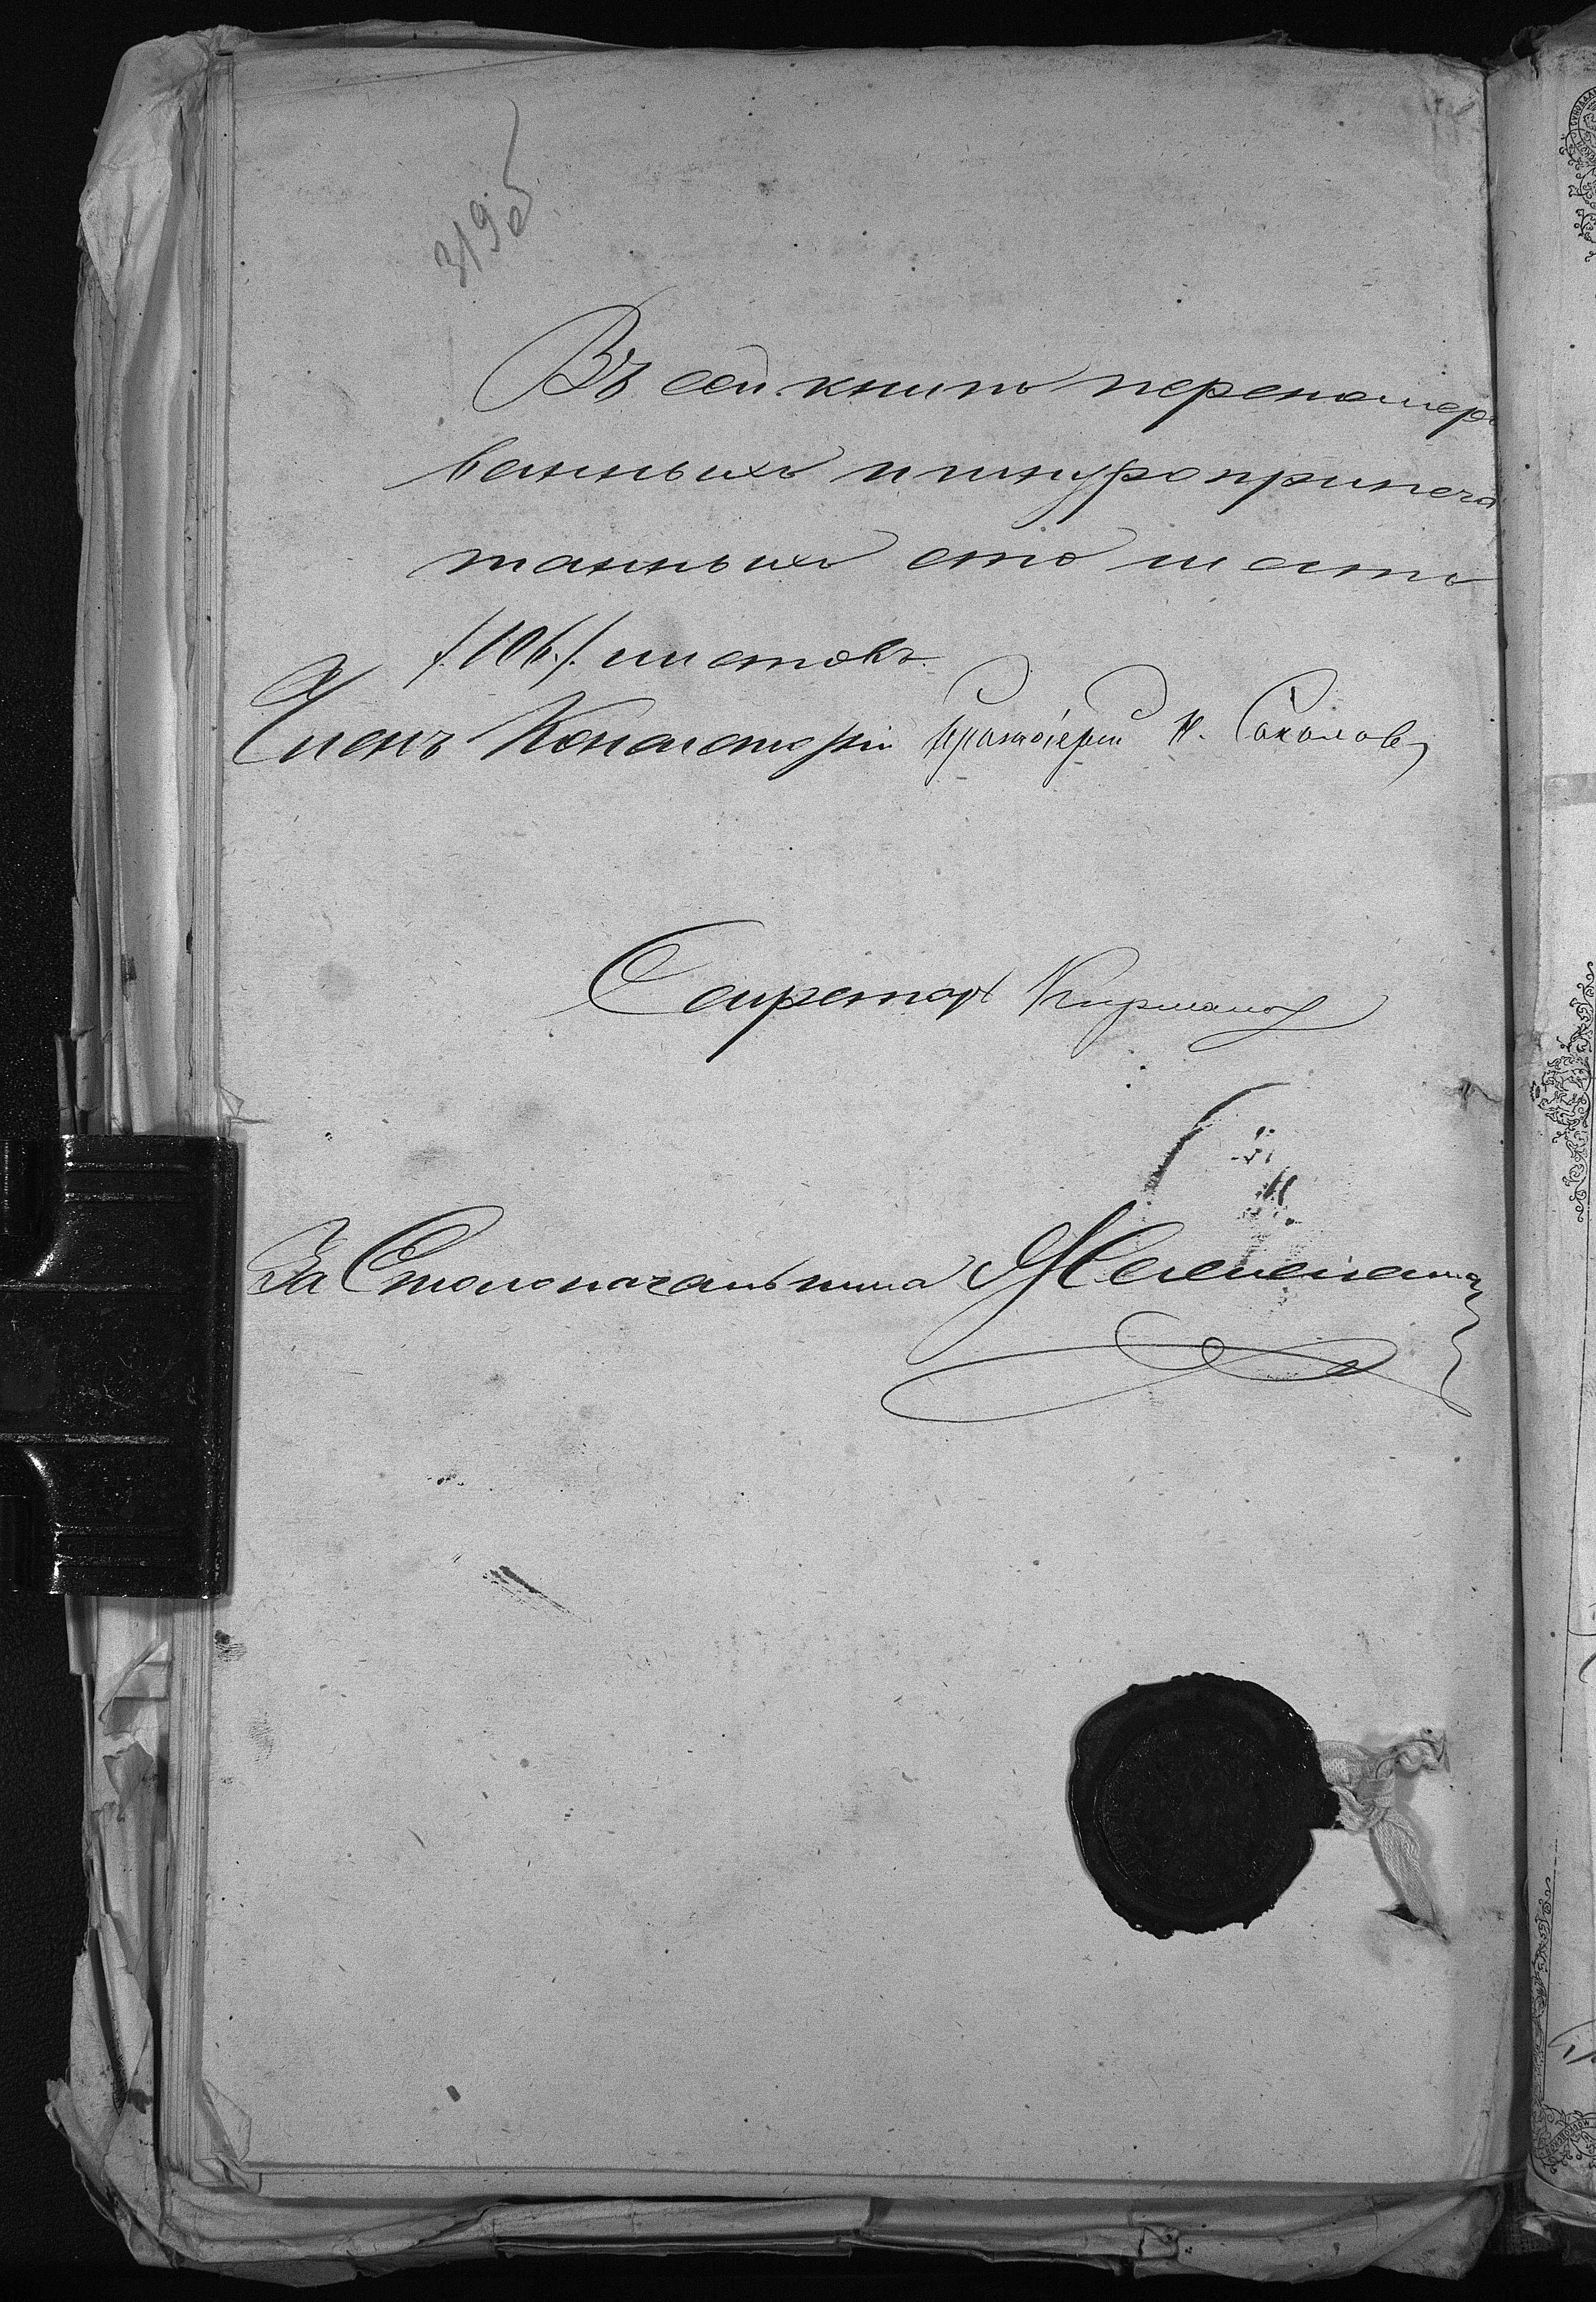 319 об
Въ сей книгѣ перенумеро
ванныхъ и шнуроприпеча
танныхъ сто шесть
/.106./. листовъ.
Членъ Консисторіи Протоіерей Н. Соколовъ
Секретарь
За Столоначальника